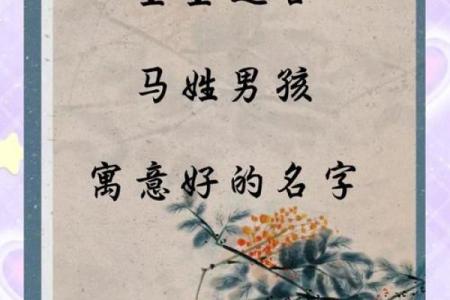 马姓男孩
寓意好的名字